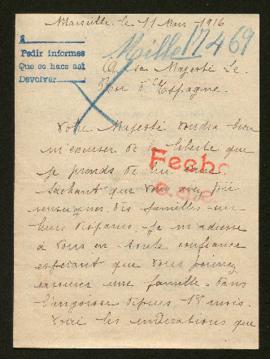 Marseille le 11 Mars 1916
A
Pedir informes
Que se hace así
Devolver
17469
A Sa Majesté Le
Roi d'Espagne.
Votre Majesté voudra bien
m'excuser de la liberté que
je prends de lui
Fecha
sachant que vous avez pu
renseigner des familles sur
leurs disparus. Je m'adresse
à Vous en toute confiance
espérant que vous pourrez
une famille dans
l'angoisse depuis 18 mois.
Voici les indications que